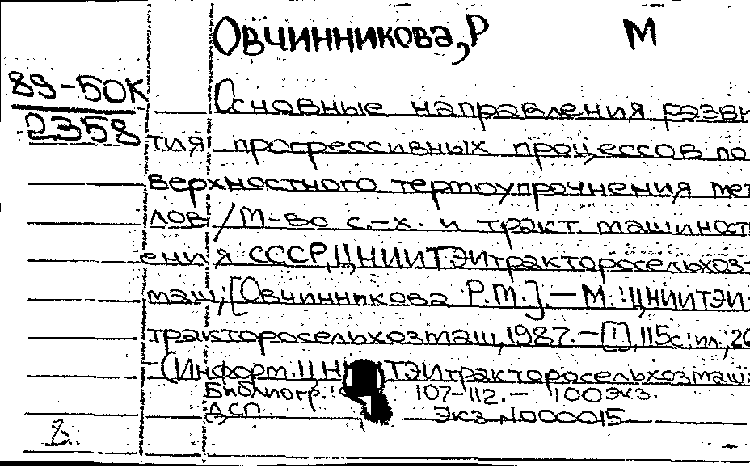 Овчинникова, Р М
89-50К
2358
Основные направления разви
тия прогрессивных процессов по
верхностного термоупрочнения мет
лов / М-во с.-х. и тракт. машиност
ения СССР, ЦНИИТЭИтракторосельхоз
маш; [Овчинникова Р.М.]. — М.: ЦНИИТЭИ
тракторосельхозмаш, 1987. — [1], 115 с.: ил.; 20
(Информ. ЦНИИТЭИтракторосельхозмаш
Библиогр.: 107-112. — 100 экз.
ДСП Экз. N000015
8